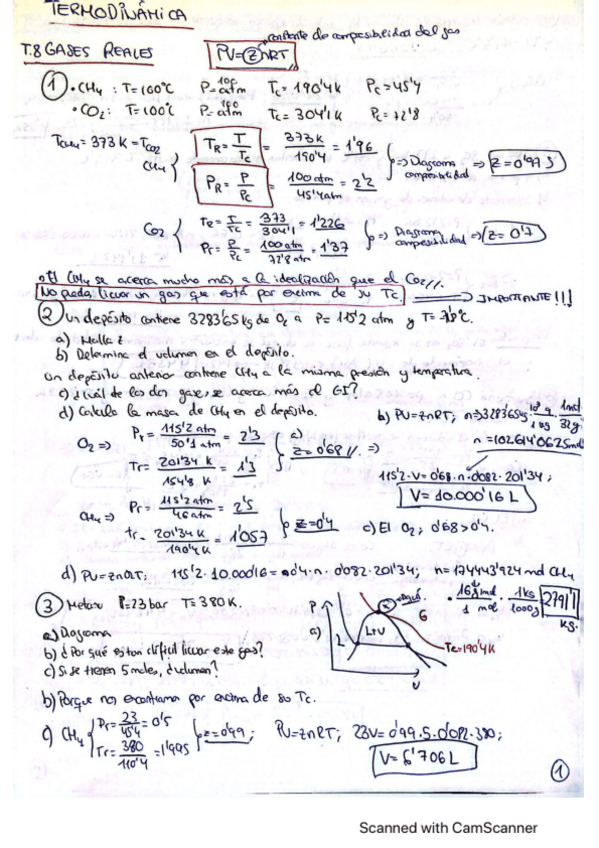 TERMODINÁMICA
constante de compresibilidad del gas
T.8 GASES REALES
PV=zNRT
① • CH4 : T=100°C P=100 atm Tc=190'4K Pc=45'4
• CO2: T=100°C P=100 atm Tc=304'1K Pc=72'8
TCH4=373K=TCO2
CH4 { TR = T/Tc = 373K/190'4 = 1'96
PR = P/Pc = 100 atm/45'4 atm = 2'2
=> Diagrama compresibilidad => z=0'97
CO2 { TR = T/Tc = 373/304'1 = 1'226
Pr = P/Pc = 100 atm/72'8 atm = 1'37
=> Diagrama compresibilidad => z=0'7
El CH4 se acerca mucho más a la idealización que el CO2
No puedo licuar un gas que está por encima de su Tc. => IMPORTANTE!!!
② Un depósito contiene 3283'65 kg de O2 a P=115'2 atm y T=
a) Halla z
b) Determina el volumen en el depósito.
Un depósito anterior contiene CH4 a la misma presión y temperatura.
c) ¿Cuál de los dos gases, se acerca más al GI?
d) Calcula la masa de CH4 en el depósito.
b) PV=znRT; n=3283'65kg · 10³g/1kg · 1mol/32g
n=102614'0625mol
O2 => Pr = 115'2 atm/50'1 atm = 2'3
Tr = 201'34 K/154'8 K = 1'3
a) z=0'68
=> 115'2·V=0'68·n·0'082·201'34;
V=10.000'16 L
CH4 => Pr = 115'2 atm/46 atm = 2'5
tr = 201'34K/190'4K = 1'057
z=0'4
c) El O2; 0'68>0'4.
d) PV=znRT; 115'2·10.000'16=0'4·n·0'082·201'34; n=174443'924 mol CH4
· 16g/1 mol · 1kg/1000g
kg.
③ Metano P=23bar T=380K.
a) Diagrama
b) ¿Por qué es tan difícil licuar este gas?
c) Si se tienen 5 moles, ¿volumen?
a)
P
L+V
G
Tc=190'4K
V
b) Porque nos encontramos por encima de su Tc.
c) CH4 { Pr = 23/45'4 = 0'5
Tr = 380/110'4 = 1'995
z=0'99;
PV=znRT; 23V=0'99·5·0'082·380;
V=6'706L
1
Scanned with CamScanner